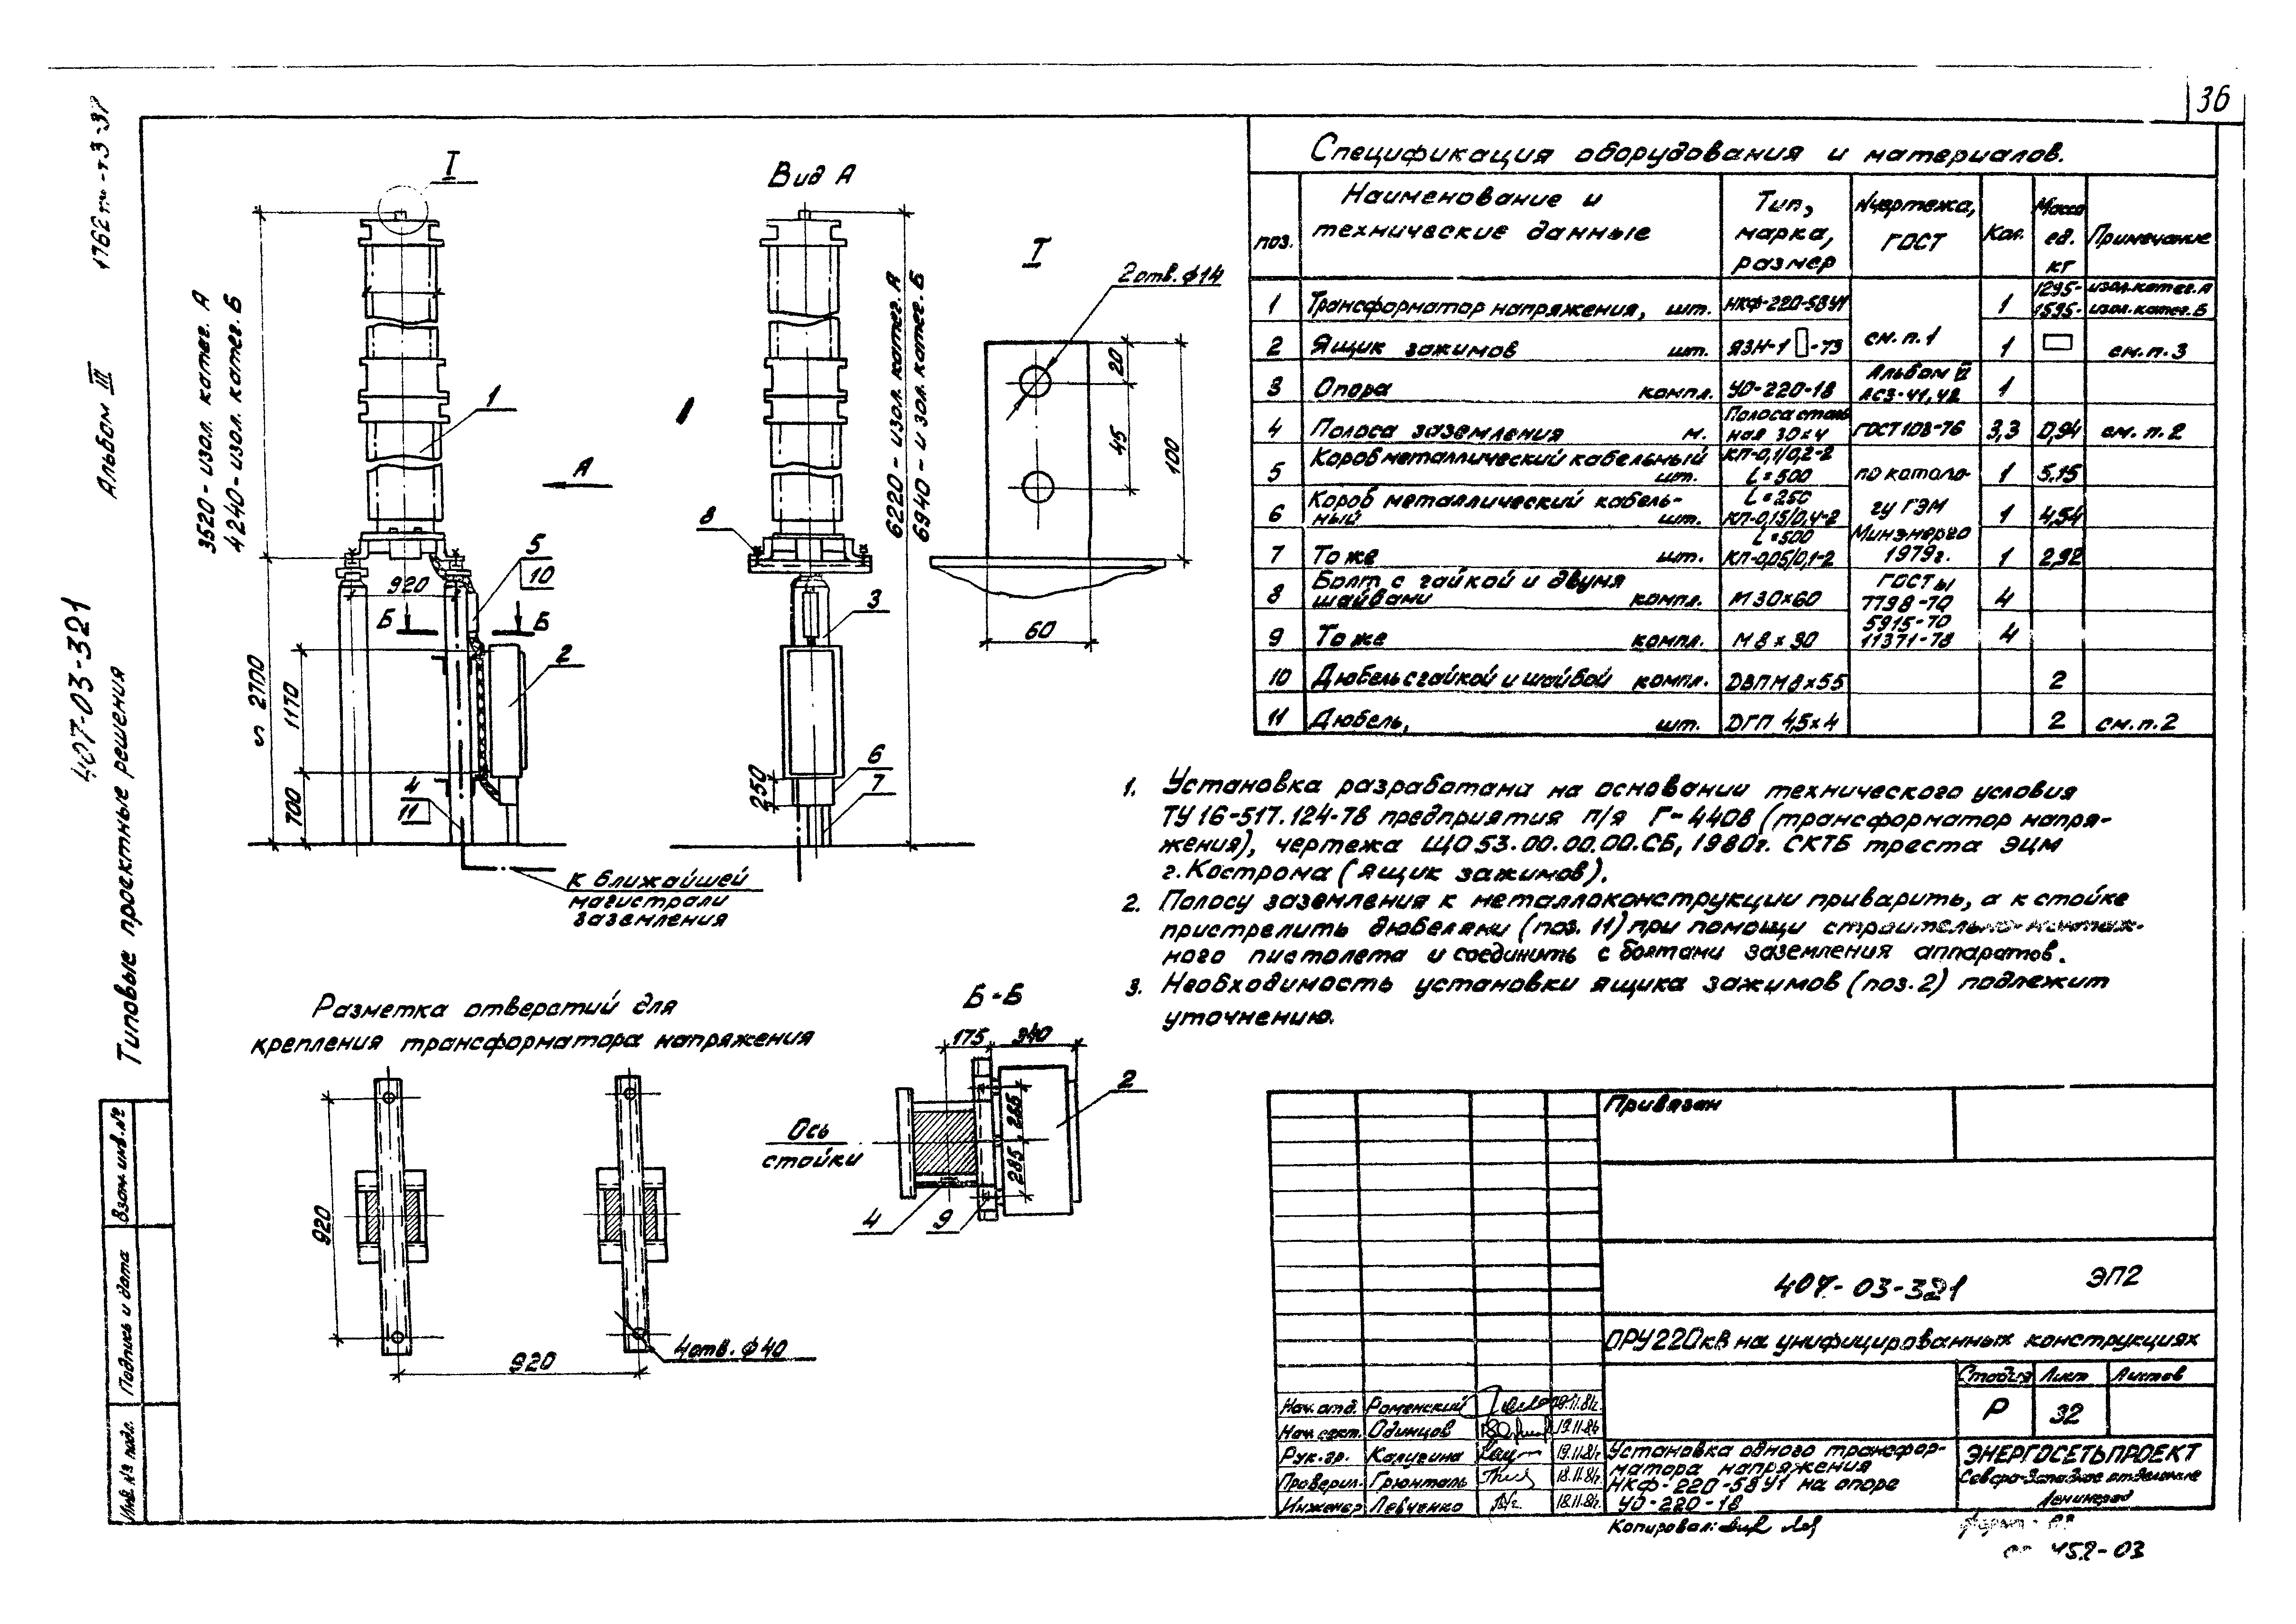 36
1762тм-т3-37
Альбом III
407-03-321
Типовые проектные решения
Взам. инв. №
Подпись и дата
Инв. № подл.
I
3520 - изол. катег. А
4240 - изол. катег. Б
1
А
5
10
920
Б
Б
2
∽ 2700
1170
700
4
11
к ближайшей
магистрали
заземления
Вид А
6220 - изол. катег. А
6940 - изол. катег. Б
8
3
250
6
7
I
2 отв. ϕ14
20
45
100
60
Разметка отверстий для
крепления трансформатора напряжения
920
920
4 отв. ϕ40
Б-Б
175
340
2
285
285
Ось
стойки
4
9
Спецификация оборудования и материалов.
поз. Наименование и технические данные Тип, марка, размер №чертежа, ГОСТ Кол. Масса ед. кг Примечание
1 Трансформатор напряжения, шт. НКФ-220-58У1 1 1295- изол. катег. А
1595- изол. катег. Б
2 Ящик зажимов шт. ЯЗН-1 -73 см. п. 1 1 см. п. 3
3 Опора компл. УО-220-18 Альбом VI АС3-41,42 1
4 Полоса заземления м. Полоса стальная 30х4 ГОСТ 103-76 3,3 0,94 см. п. 2
5 Короб металлический кабельный шт. КП-0,1/0,2-2 L=500 по катало- 1 5,15
6 Короб металлический кабель-ный шт. L=250 КП-0,15/0,4-2 гу ГЭМ 1 4,54
7 То же шт. L=500 КП-0,05/0,1-2 Минэнерго 1979г. 1 2,92
8 Болт с гайкой и двумя шайбами компл. М30х60 ГОСТы 7798-70 4
9 То же компл. М8х30 5915-70 11371-78 4
10 Дюбель с гайкой и шайбой компл. ДВПМ8х55 2
11 Дюбель, шт. ДГП 4,5х4 2 см. п. 2
1. Установка разработана на основании технического условия
ТУ16-517.124-78 предприятия п/я Г-4408 (трансформатор напря-
жения), чертежа ЩО53.00.00.00.СБ, 1980г. СКТБ треста ЭЦМ
г. Кострома (ящик зажимов).
2. Полосу заземления к металлоконструкции приварить, а к стойке
пристрелить дюбелями (поз. 11) при помощи строительно-монтаж-
ного пистолета и соединить с болтами заземления аппаратов.
3. Необходимость установки ящика зажимов (поз. 2) подлежит
уточнению.
Привязан
407-03-321 ЭП2
ОРУ220кВ на унифицированных конструкциях
Стадия Лист Листов
Р 32
Нач. отд. Роменский
Нач. сект. Одинцов
Рук. гр. Калугина
Проверил. Грюнталь
Инженер Левченко
Установка одного трансфор-
матора напряжения
НКФ-220-58У1 на опоре
УО-220-18
ЭНЕРГОСЕТЬПРОЕКТ
Северо-Западное отделение
Ленинград
Копировал:
452-03